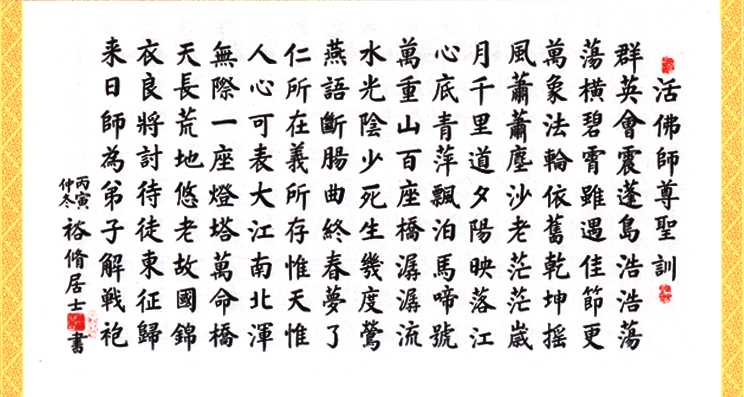 活佛師尊聖訓
群英會震蓬島浩浩蕩
蕩橫碧霄雖遇佳節更
萬象法輪依舊乾坤搖
風蕭蕭塵沙老茫茫歲
月千里道夕陽映落江
心底青萍飄泊馬啼號
萬重山百座橋潺潺流
水光陰少死生幾度鶯
燕語斷腸曲終春夢了
仁所在義所存惟天惟
人心可表大江南北渾
無際一座燈塔萬命橋
天長荒地悠老故國錦
衣良將討待徒東征歸
来日師為弟子解戦袍
丙寅
仲冬
裕脩居士書